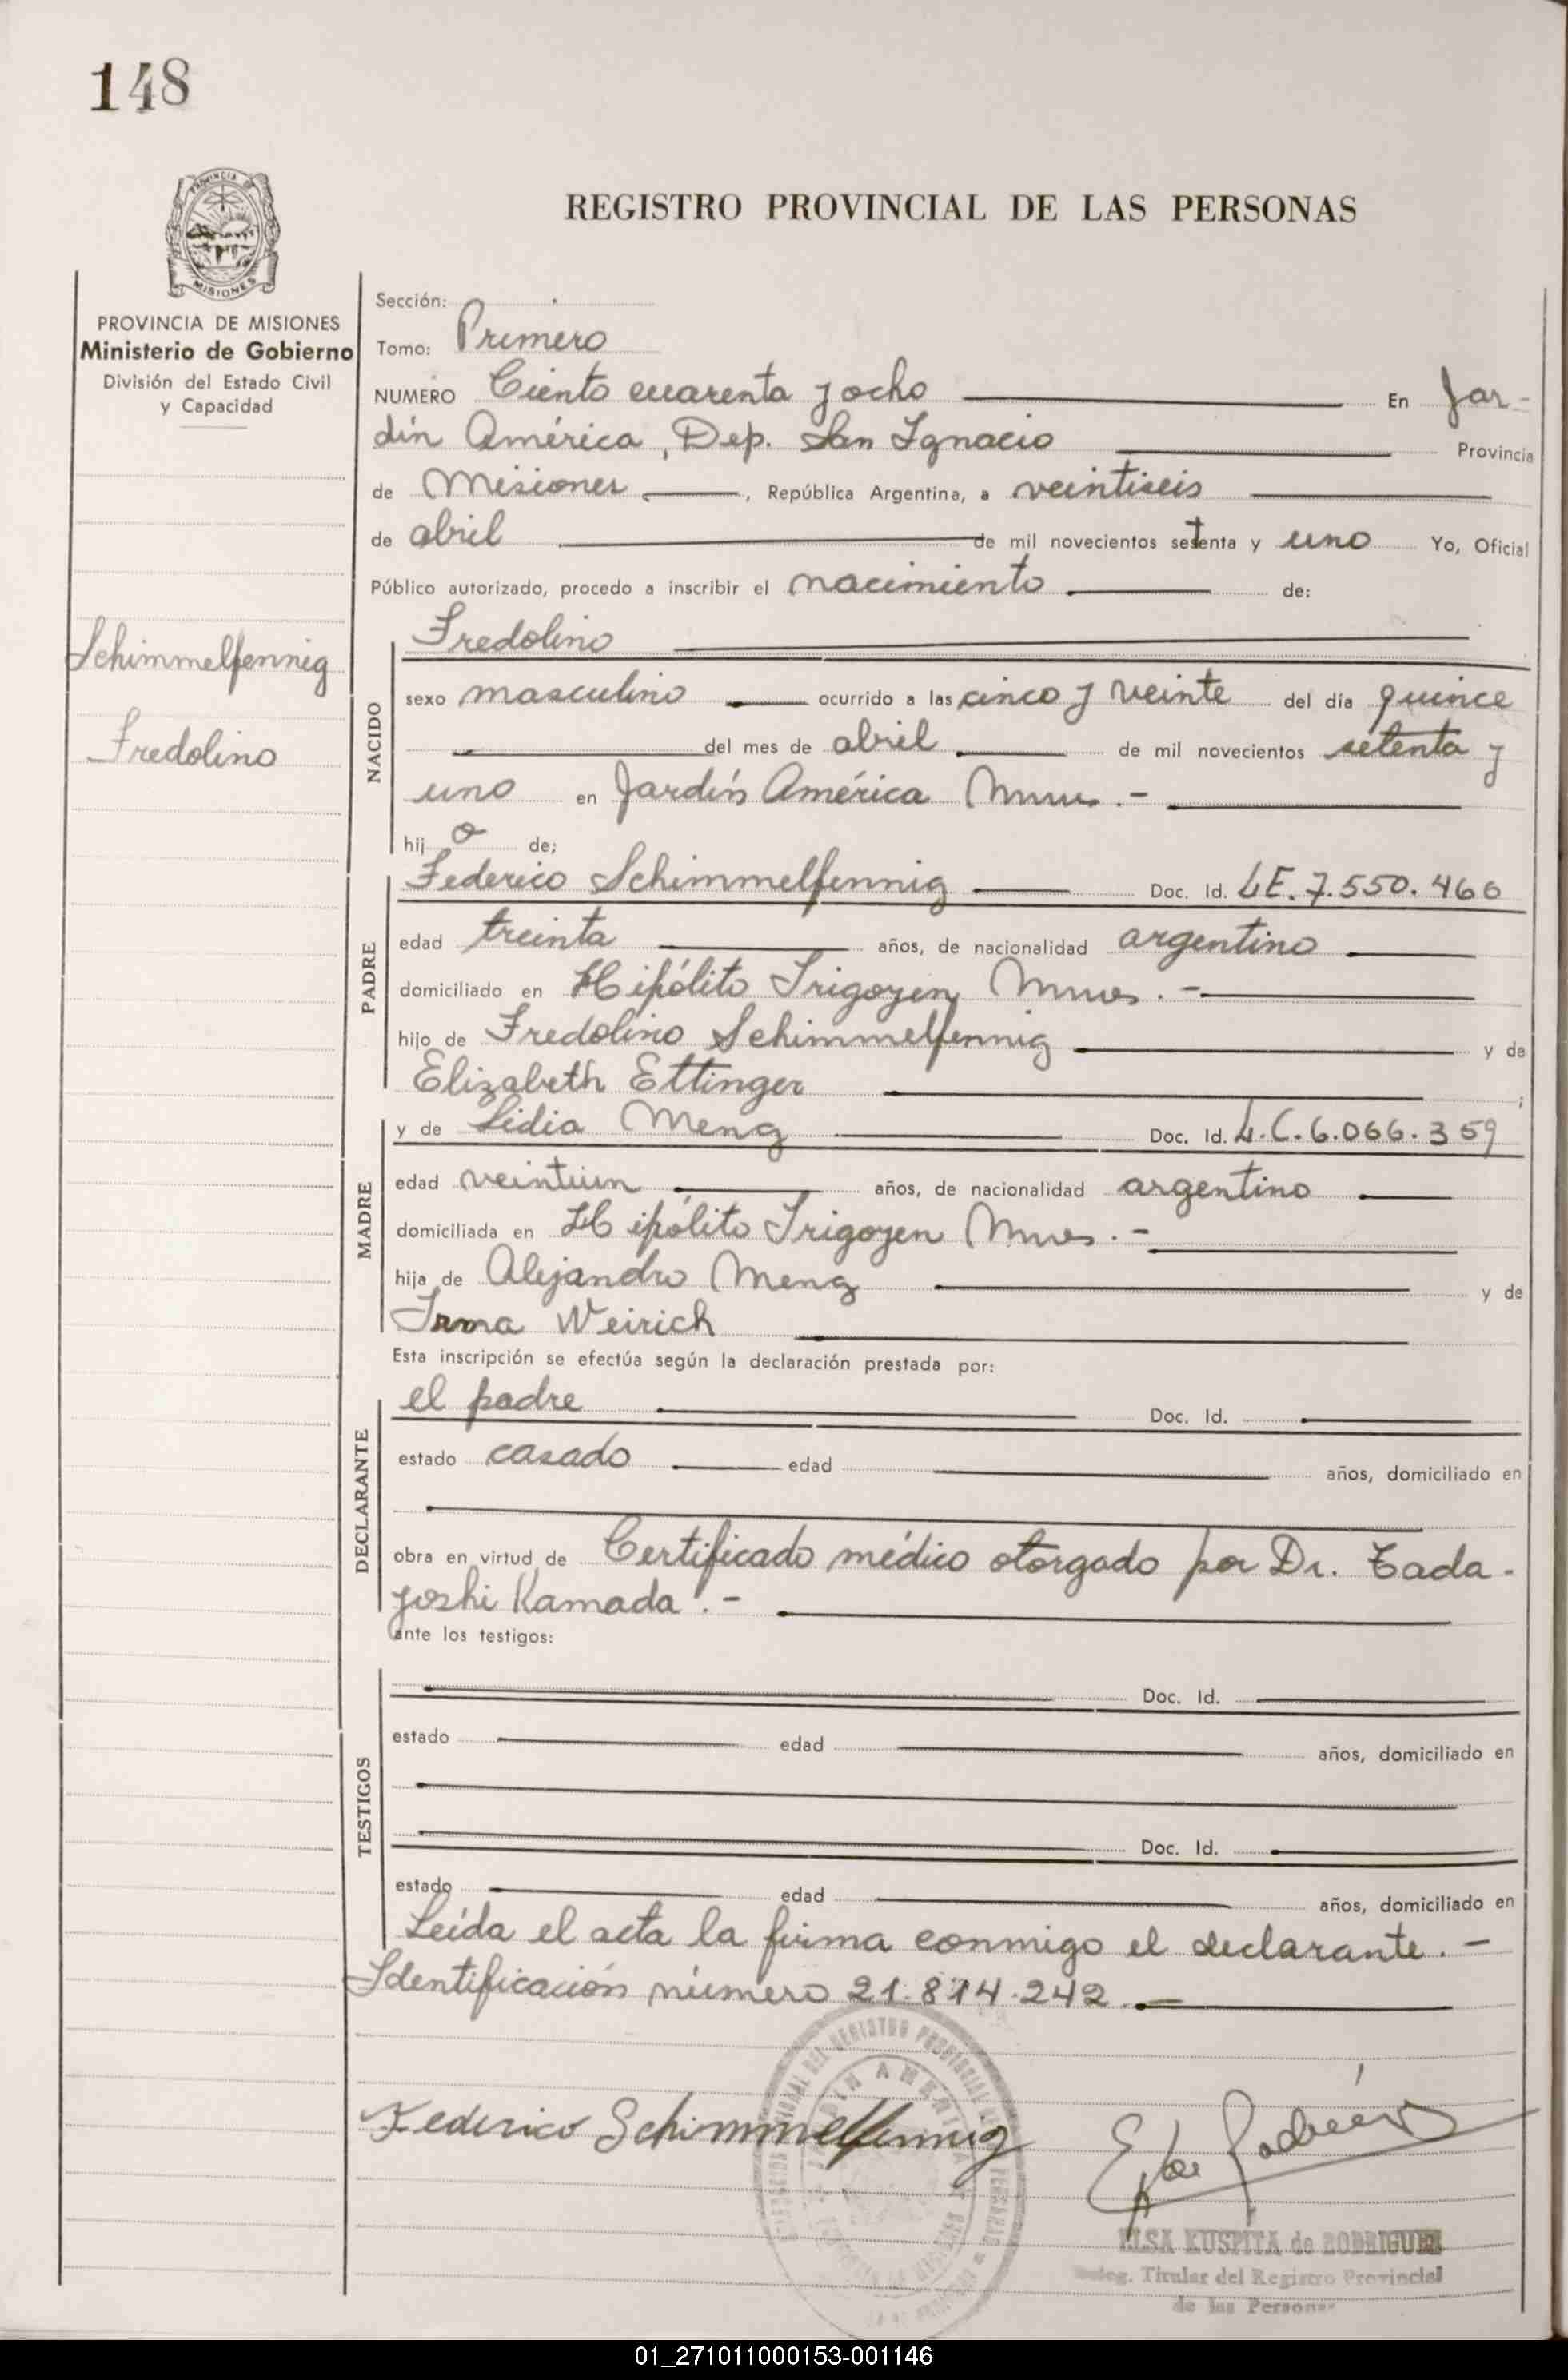 148
PROVINCIA DE
MISIONES
REGISTRO PROVINCIAL DE LAS PERSONAS
PROVINCIA DE MISIONES
Ministerio de Gobierno
División del Estado Civil
y Capacidad
Schimmelfennig
Fredolino
Sección:
Tomo: Primero
NUMERO Ciento cuarenta y ocho En Jar-
dín América, Dep. San Ignacio Provincia
de Misiones, República Argentina, a veintiseis
de abril de mil novecientos setenta y uno Yo, Oficial
Público autorizado, procedo a inscribir el nacimiento de:
NACIDO
Fredolino
sexo masculino ocurrido a las cinco y veinte del día quince
del mes de abril de mil novecientos setenta y
uno en Jardín América Mnes.-
hij o de;
PADRE
Federico Schimmelfennig Doc. Id. LE. 7.550.466
edad treinta años, de nacionalidad argentino
domiciliado en Hipólito Irigoyen Mnes.-
hijo de Fredolino Schimmelfennig y de
Elizabeth Ettinger ;
MADRE
y de Lidia Meng Doc. Id. L.C.6.066.359
edad veintiun años, de nacionalidad argentino
domiciliada en Hipólito Irigoyen Mnes.-
hija de Alejandro Meng y de
Irma Weirich
Esta inscripción se efectúa según la declaración prestada por:
DECLARANTE
el padre Doc. Id.
estado casado edad años, domiciliado en
obra en virtud de Certificado médico otorgado por Dr. Tada-
yoshi Kamada.-
ante los testigos:
TESTIGOS
Doc. Id.
estado edad años, domiciliado en
Doc. Id.
estado edad años, domiciliado en
Leída el acta la firma conmigo el declarante.-
Identificación número 21.814.242.-
Federico Schimmelfennig
ELSA KUSPITA de RODRIGUEZ
Deleg. Titular del Registro Provincial
de las Personas
01_271011000153-001146